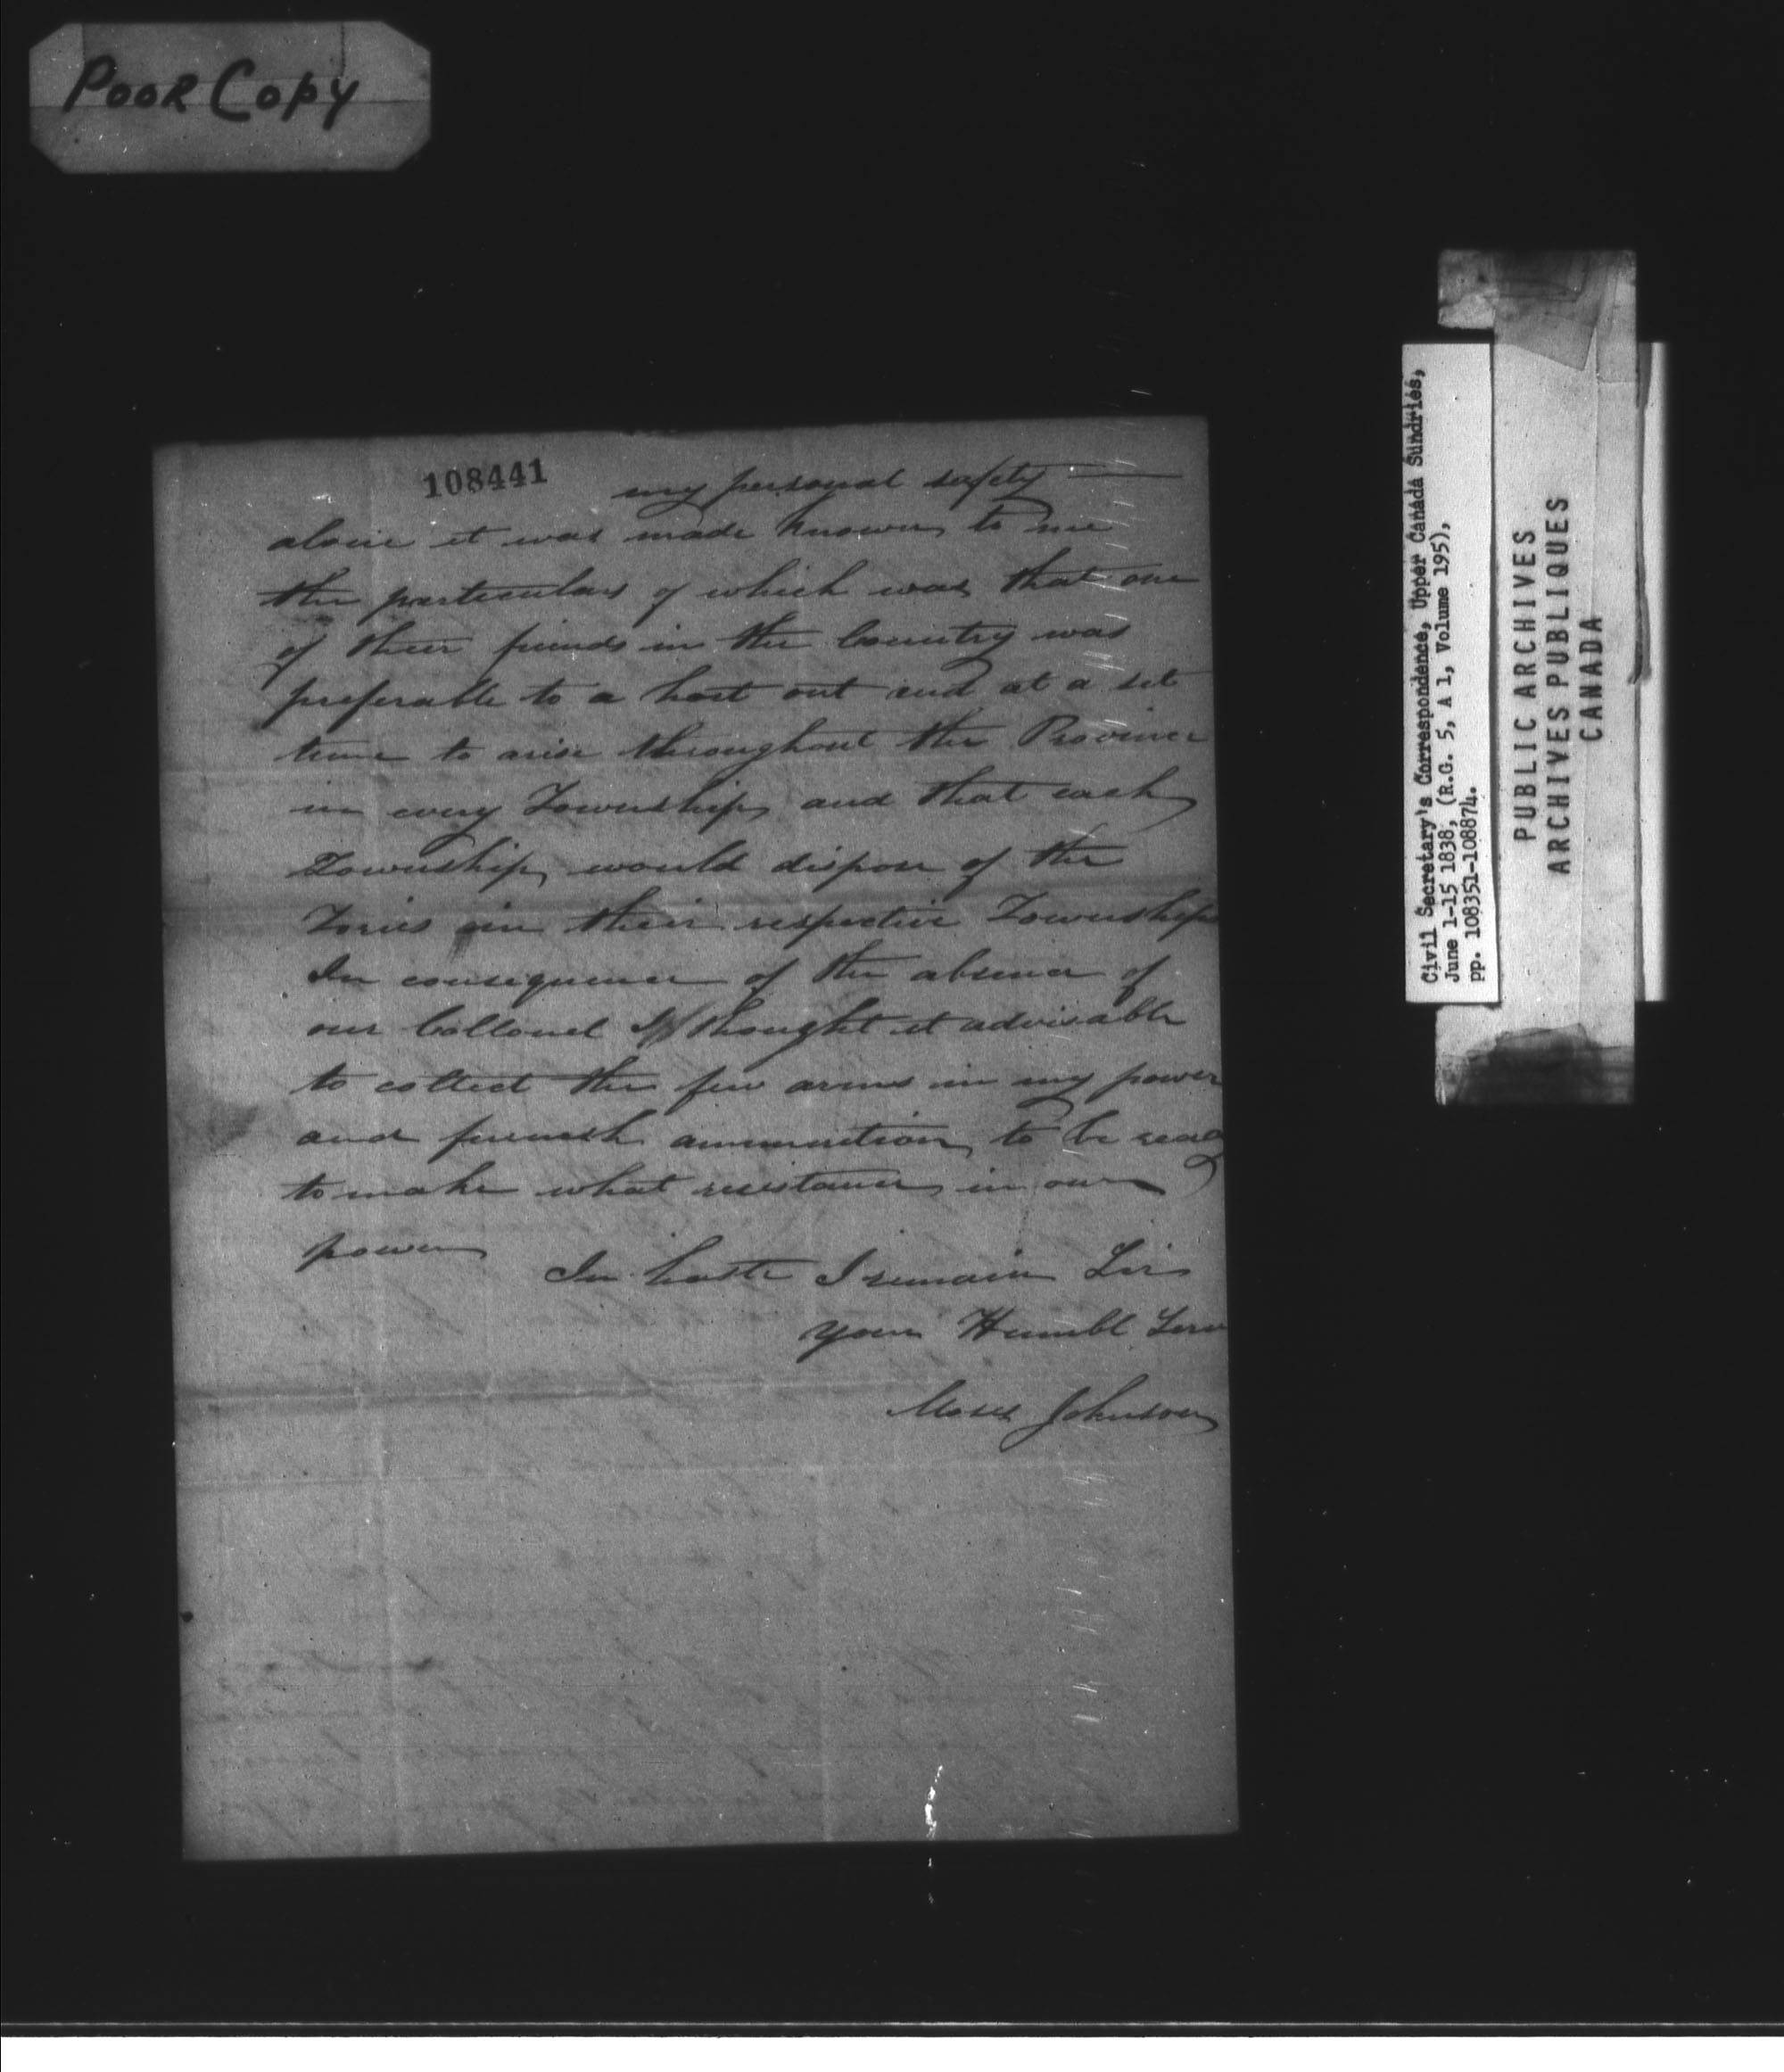 Poor Copy
108441
my personal safety
alone it was made known to me
the particulars of which was that one
of their friends in the Country was
preferable to a host out and at a set
time to arise throughout the Province
in every Township and that each
Township would dispose of the
Tories in their respective Townships
In consequence of the absence of
our Collonel I thought it advisable
to collect the few arms in my power
and furnish ammunition to be ready
to make what resistance in our
power
In haste I remain Sir
your Humbl Serv
Moses Johnson
Civil Secretary's Correspondence, Upper Canada Sundries,
June 1-15 1838, (R.G. 5, A 1, Volume 195),
pp. 108351-108874.
PUBLIC ARCHIVES
ARCHIVES PUBLIQUES
CANADA